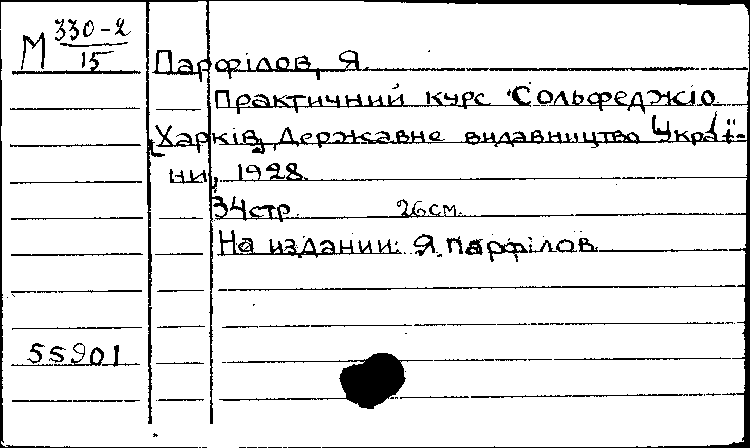 М 330-2
15
Парфілов, Я.
Практичний курс Сольфеджіо
[Харків], Державне видавництво Украї-
ни, 1928.
34стр. 26см.
На издании: Я. Парфілов.
55901